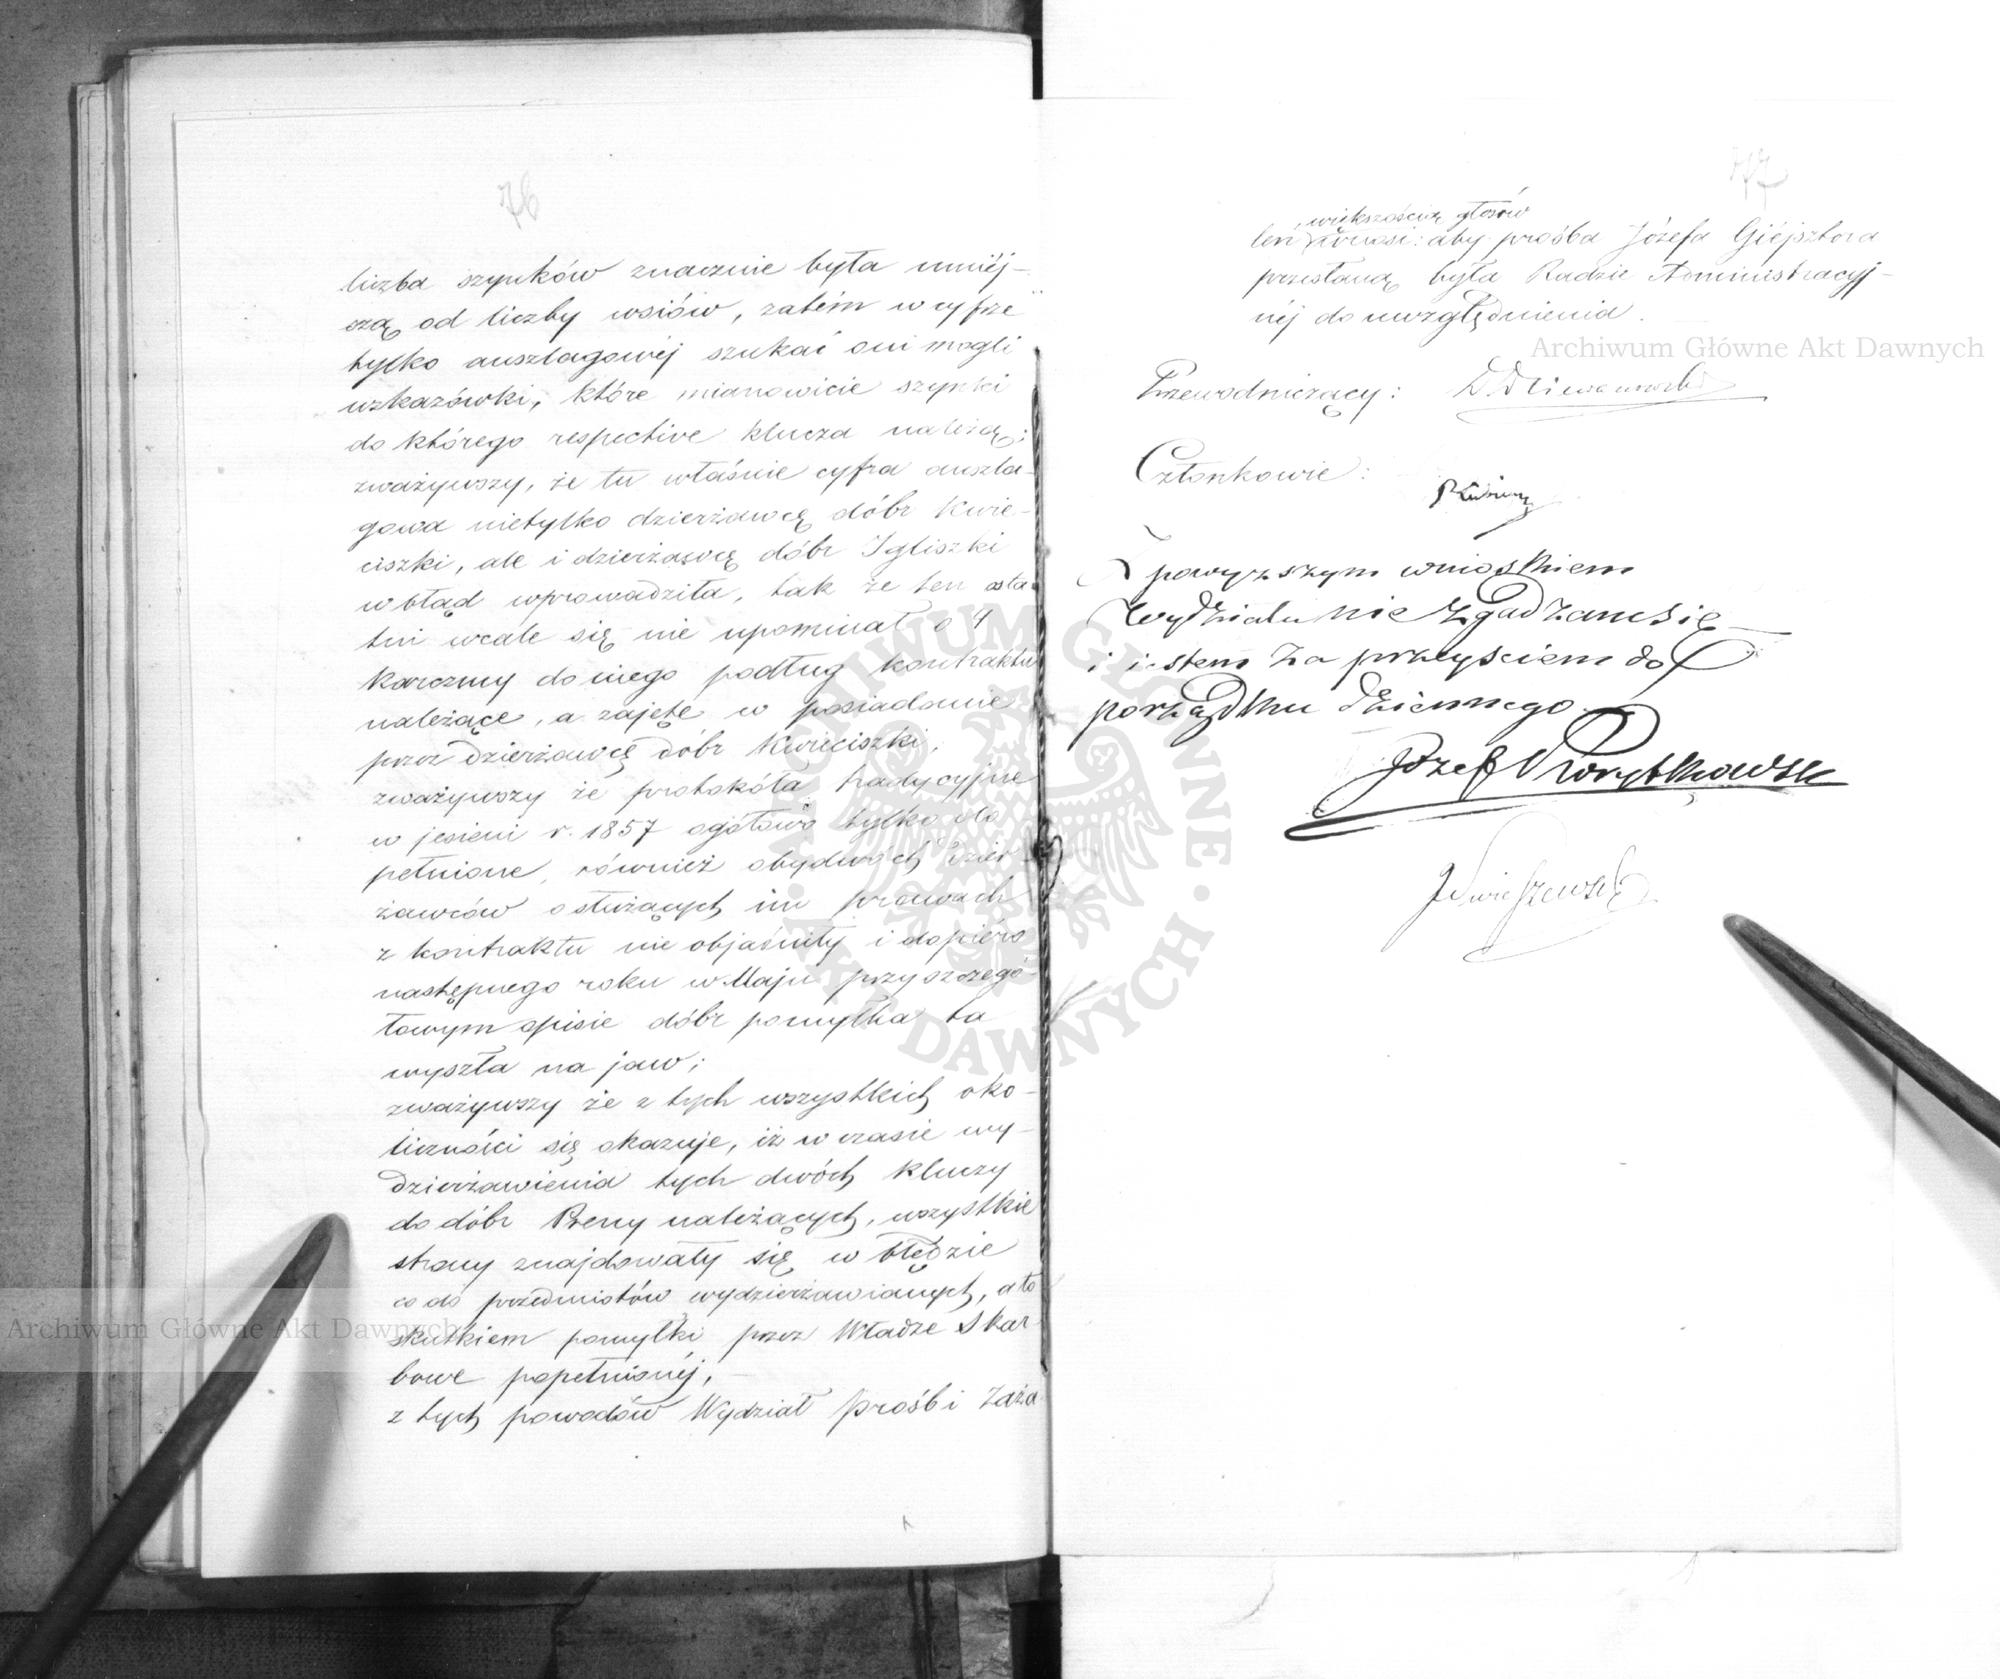 76
liczba szynków znacznie była mniéj-
szą od liczby wsiów, zatém w cyfrze
tylko auszlagowéj szukać oni mogli
wskazówki, które mianowicie szynki
do którego respective klucza należą;
zważywszy, że tu właśnie cyfra auszla-
gowa nietylko dzierżawcę dóbr Kwie-
ciszki, ale i dzierżawcę dóbr Igliszki
w błąd wprowadziła, tak że ten osta-
tni wcale się nie upominał o 4
karczmy do niego podług kontraktu
należące, a zajęte w posiadanie
przez dzierżawcę dóbr Kwieciszki;
zważywszy że protokóła tradycyjne
w jesieni r. 1857 ogółowo tylko do
pełnione, również obydwóch dzier-
żawców o służących im prawach
z kontraktu nie objaśniły i dopiéro
następnego roku w Maju przy szczegó-
łowym opisie dóbr pomyłka ta
wyszła na jaw;
zważywszy że z tych wszystkich oko-
liczności się okazuje, iż w czasie wy-
dzierżawienia tych dwóch kluczy
do dóbr Preny należących, wszystkie
strony znajdowały się w błędzie
co do przedmiotów wydzierżawianych, a to
skutkiem pomyłki przez Władze Skar
bowe popełnionéj,
z tych powodów Wydział Próśb i Zaża
77
większością głosów
leń wnosi: aby prośba Józefa Giéjsztora
przesłaną była Radzie Administracyj-
néj do uwzględnienia.
Przewodniczący:
Członkowie:
Z powyższym wnioskiem
Wydziału nie zgadzam się
i jestem za przejściem do
porządku dziennego
Józef
Archiwum Główne Akt Dawnych
Archiwum Główne Akt Dawnych
ARCHIWUM GŁÓWNE AKT DAWNYCH